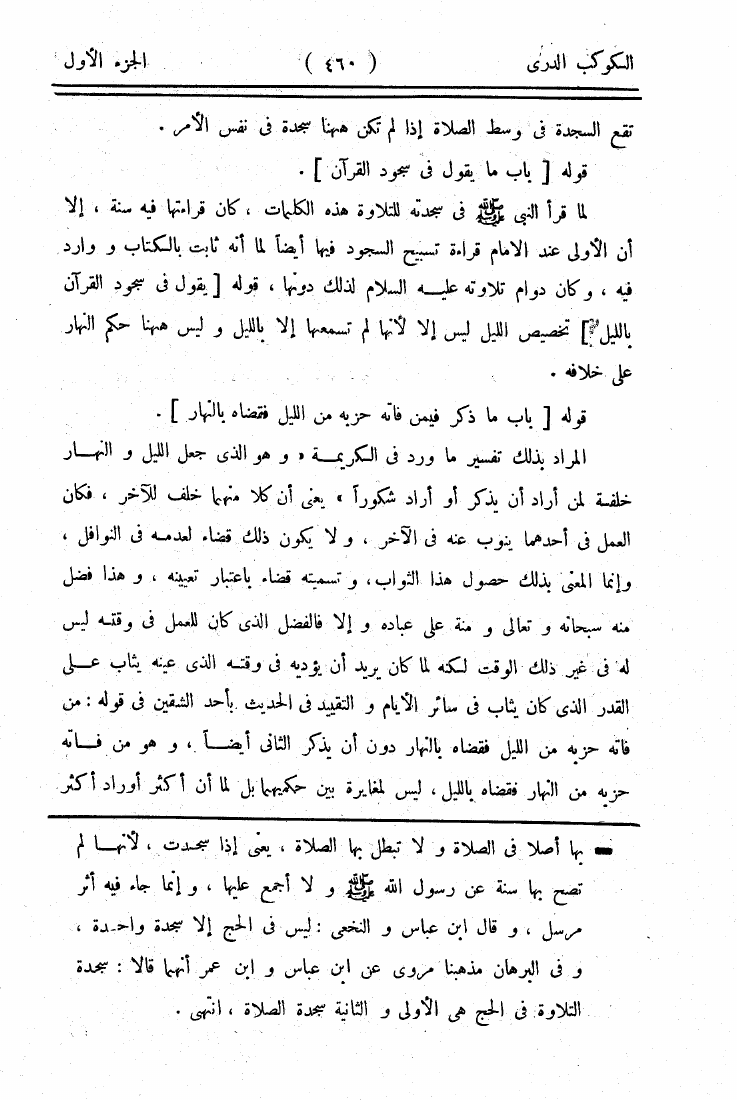 الكوكب الدرى ( ٤٦٠ ) الجزء الأول
تقع السجدة فى وسط الصلاة إذا لم تكن ههنا سجدة فى نفس الأمر .
قوله [ باب ما يقول فى سجود القرآن ] .
لما قرأ النبى ﷺ فى سجدته للتلاوة هذه الكلمات ، كان قراءتها فيه سنة ، إلا
أن الأولى عند الامام قراءة تسبيح السجود فيها أيضاً لما أنه ثابت بالكتاب و وارد
فيه ، وكان دوام تلاوته عليه السلام لذلك دونها ، قوله [ يقول فى سجود القرآن
بالليل ] تخصيص الليل ليس إلا لأنها لم تسمعها إلا بالليل و ليس ههنا حكم النهار
على خلافه .
قوله [ باب ما ذكر فيمن فاته حزبه من الليل فقضاه بالنهار ] .
المراد بذلك تفسير ما ورد فى الكريمة « و هو الذى جعل الليل و النهار
خلفة لمن أراد أن يذكر أو أراد شكوراً » يعنى أن كلا منهما خلف للآخر ، فكان
العمل فى أحدهما ينوب عنه فى الآخر ، و لا يكون ذلك قضاء لعدمه فى النوافل ،
وإنما المعنى بذلك حصول هذا الثواب، و تسميته قضاء باعتبار تعيينه ، و هذا فضل
منه سبحانه و تعالى و منة على عباده و إلا فالفضل الذى كان للعمل فى وقته ليس
له فى غير ذلك الوقت لكنه لما كان يريد أن يؤديه فى وقته الذى عينه يثاب على
القدر الذى كان يثاب فى سائر الأيام و التقييد فى الحديث بأحد الشقين فى قوله : من
فاته حزبه من الليل فقضاه بالنهار دون أن يذكر الثانى أيضاً ، و هو من فاته
حزبه من النهار فقضاه بالليل ، ليس لمغايرة بين حكميهما بل لما أن أكثر أوراد أكثر
بها أصلا فى الصلاة و لا تبطل بها الصلاة ، يعنى إذا سجدت ، لأنها لم
تصح بها سنة عن رسول الله ﷺ و لا أجمع عليها ، و إنما جاء فيه أثر
مرسل ، و قال ابن عباس و النخعى : ليس فى الحج إلا سجدة واحدة ،
و فى البرهان مذهبنا مروى عن ابن عباس و ابن عمر أنهما قالا : سجدة
التلاوة فى الحج هى الأولى و الثانية سجدة الصلاة ، انتهى .